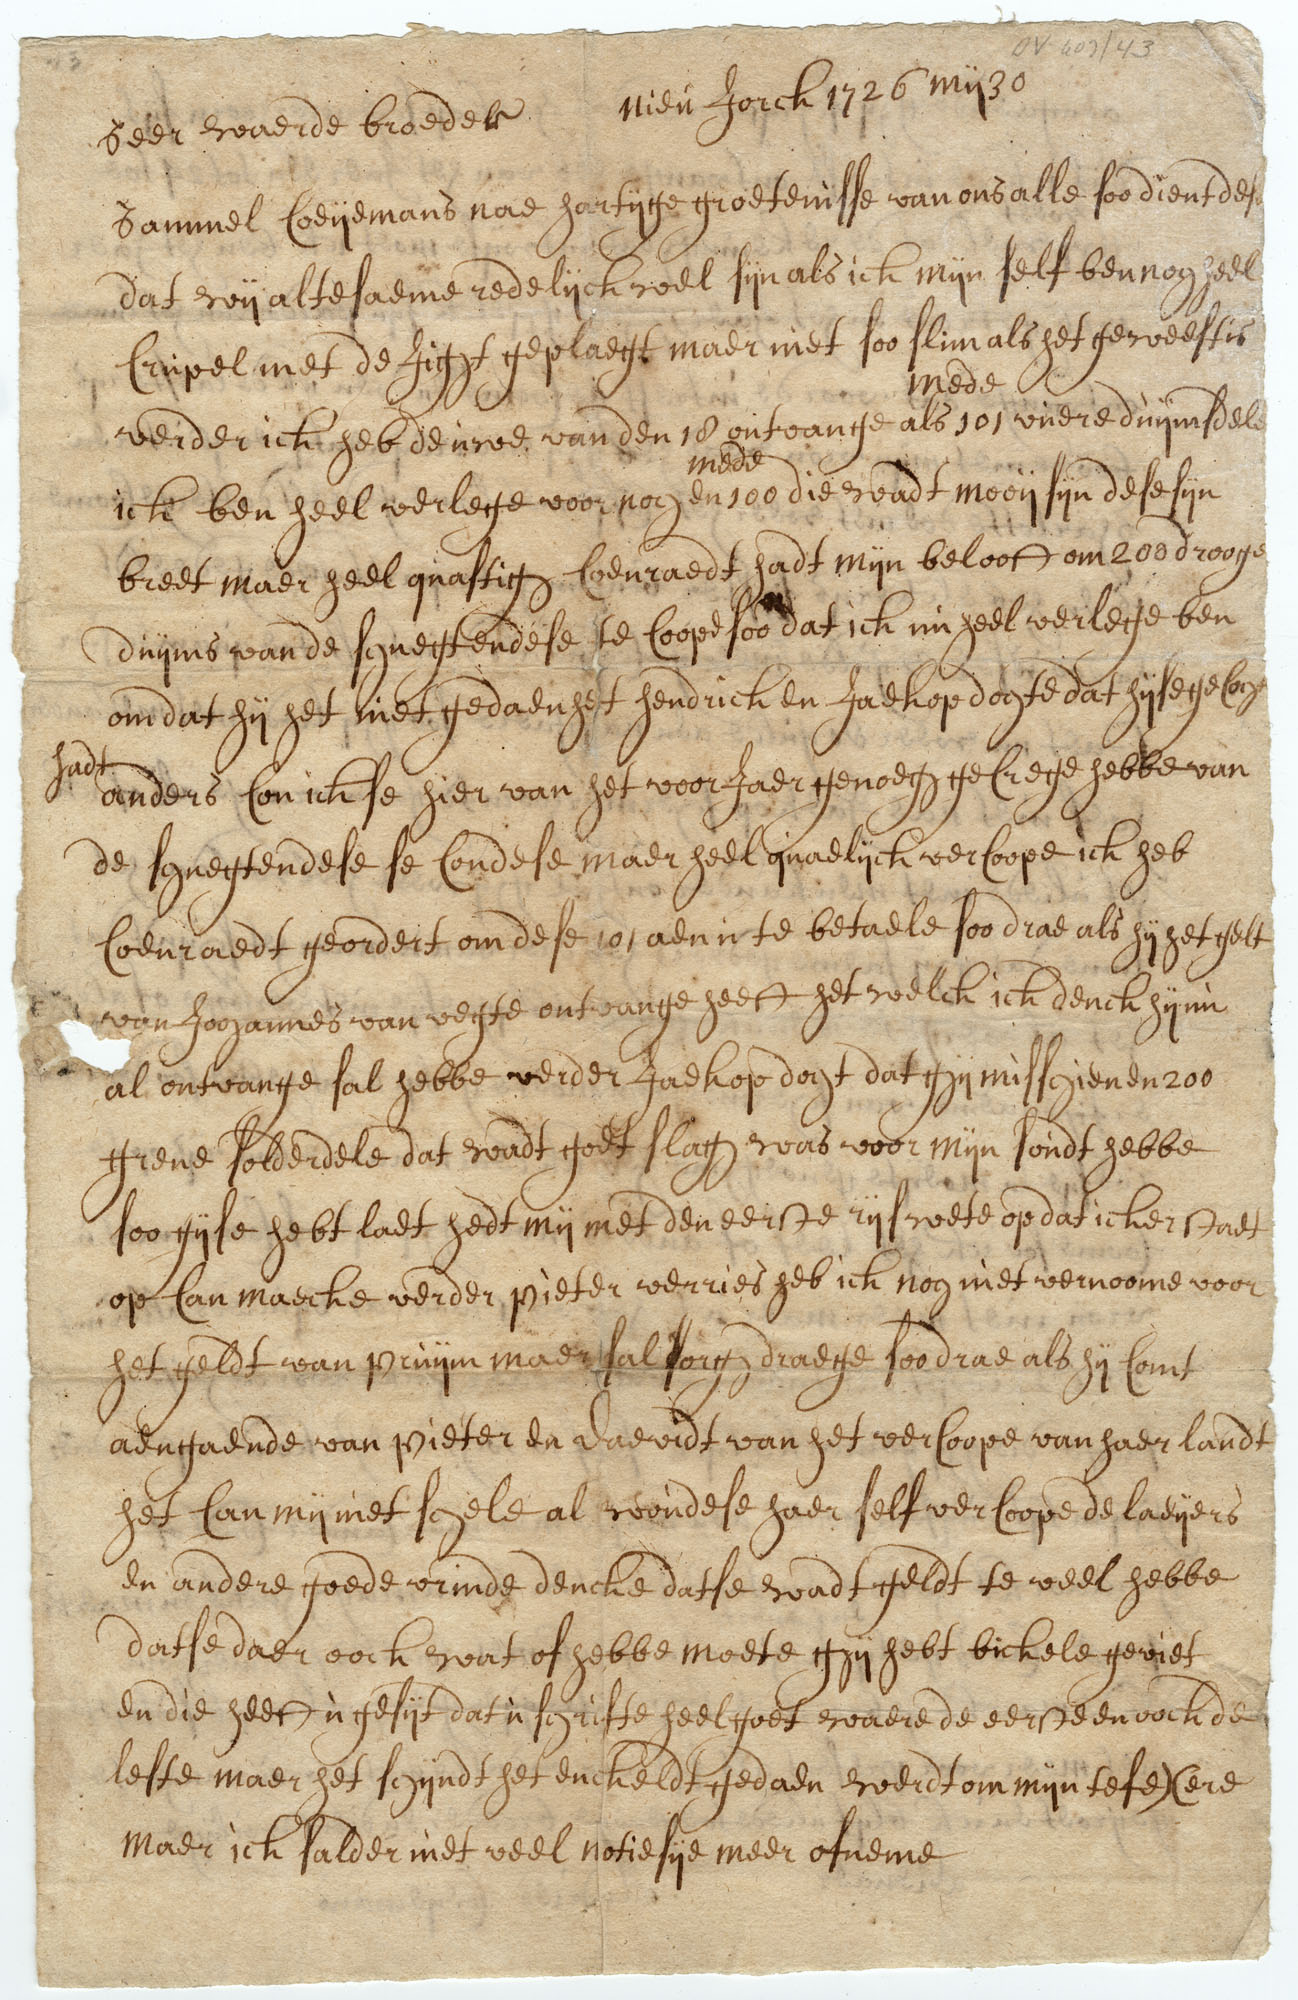 OV 607/43
nieu Jorck 1726 mij 30
Seer waerde broeder
Sammel Coeijemans nae hartyge groetenisse van ons alle soo dient dese
dat wij altesaeme redelijck wel sijn als ick mijn self ben nog heel
Crupel met de Jigt geplaegt maer niet soo slim als het geweest is
mede
verder ick heb de uwe van den 18 ontvange als 101 vuere duijmsdele
mede
ick ben heel verlege voor nog en 100 die wadt mooij sijn dese sijn
breet maer heel quastig Coenraedt hadt mijn beloost om 200 drooge
duijms van de schnegtendese te Coope soo dat ick nu heel verlege ben
omdat hij het niet gedaen het hendrick en Jaekop dogte dat hijse gecogt
hadt
anders Con ickse hier van het voor Jaer genoeg gecrege hebbe van
de schnegtendese se Condese maer heel quaelijck vercoope ick heb
Coenraedt geordert om dese 101 aen u te betaele soo drae als hij het gelt
van Joohannes van vegte ontvange heeft het welck ick denck hij nu
al ontvange sal hebbe verder Jaekop dogt dat ghij misschien en 200
grene solderdele dat wadt goet slag was voor mijn sondt hebbe
soo gijse hebt laet hedt mij met den eerste rijs wete op dat ick er staet
op Can maecke verder pieter verries heb ick nog niet vernoome voor
het geldt van pruijm maer sal sorg draege soo drae als hij Comt
aengaende van pieter en daevidt van het vercoope van haer landt
het Can mij niet schele al wondese haer self vercoope de laeijers
en andere goede vrinde dencke datse wadt geldt te veel hebbe
datse daer oock wat of hebbe moete ghij hebt bickele geviet
en die heeft u gesijt dat u schrifte heel goet waere de eerste en oock de
leste maer het schijndt het enckeldt gedaen werdt om mijn te fexere
maer ick salder niet veel notiesije meer of neme